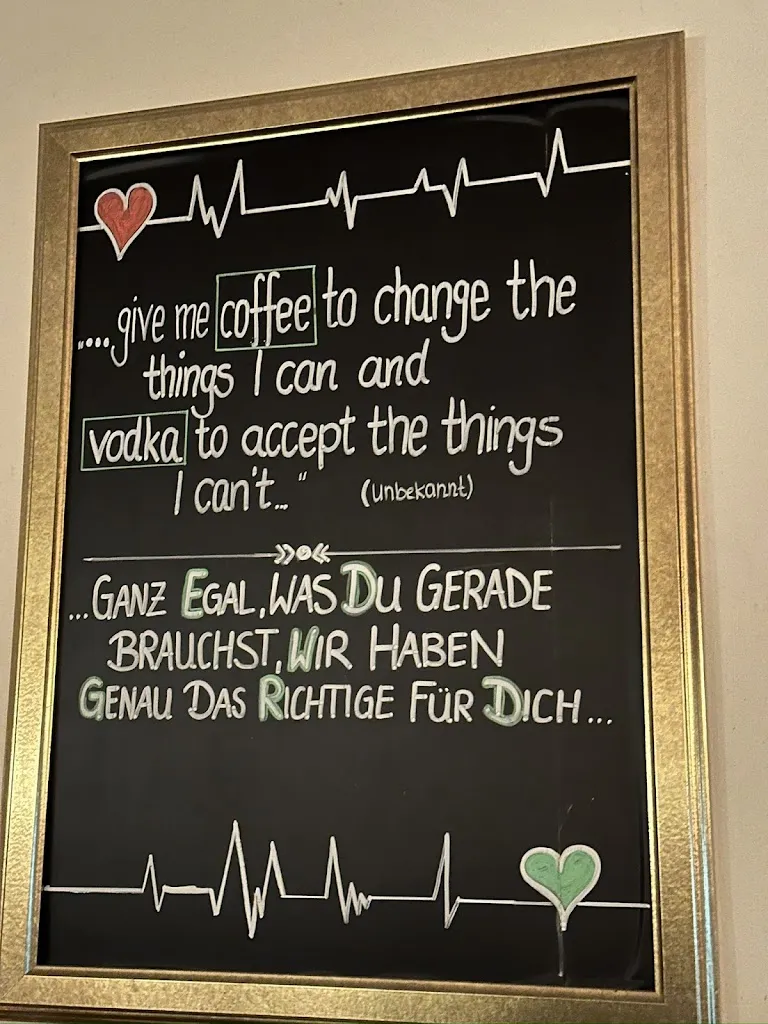 „...give me coffee to change the
things I can and
vodka to accept the things
I can't..." (Unbekannt)
...GANZ EGAL, WAS DU GERADE
BRAUCHST, WIR HABEN
GENAU DAS RICHTIGE FÜR DICH...